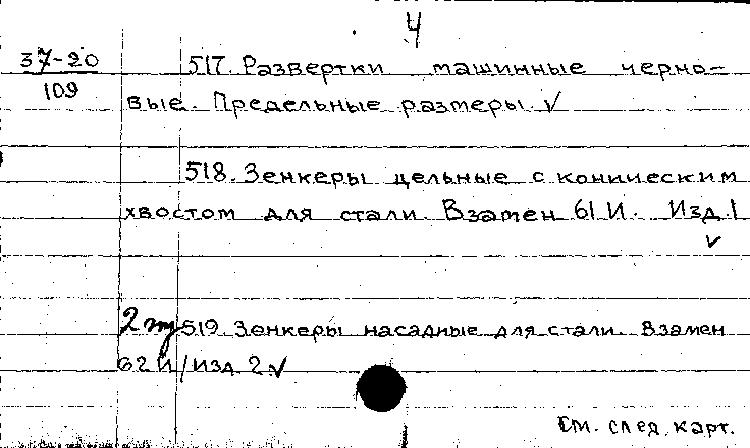 4
37-20 517. Развертки машинные черно-
109 вые. Предельные размеры. ✓
518. Зенкеры цельные с коническим
хвостом для стали. Взамен 61 И. Изд. 1
✓
519. Зенкеры насадные для стали. Взамен
62 И / изд. 2 ✓
См. след. карт.